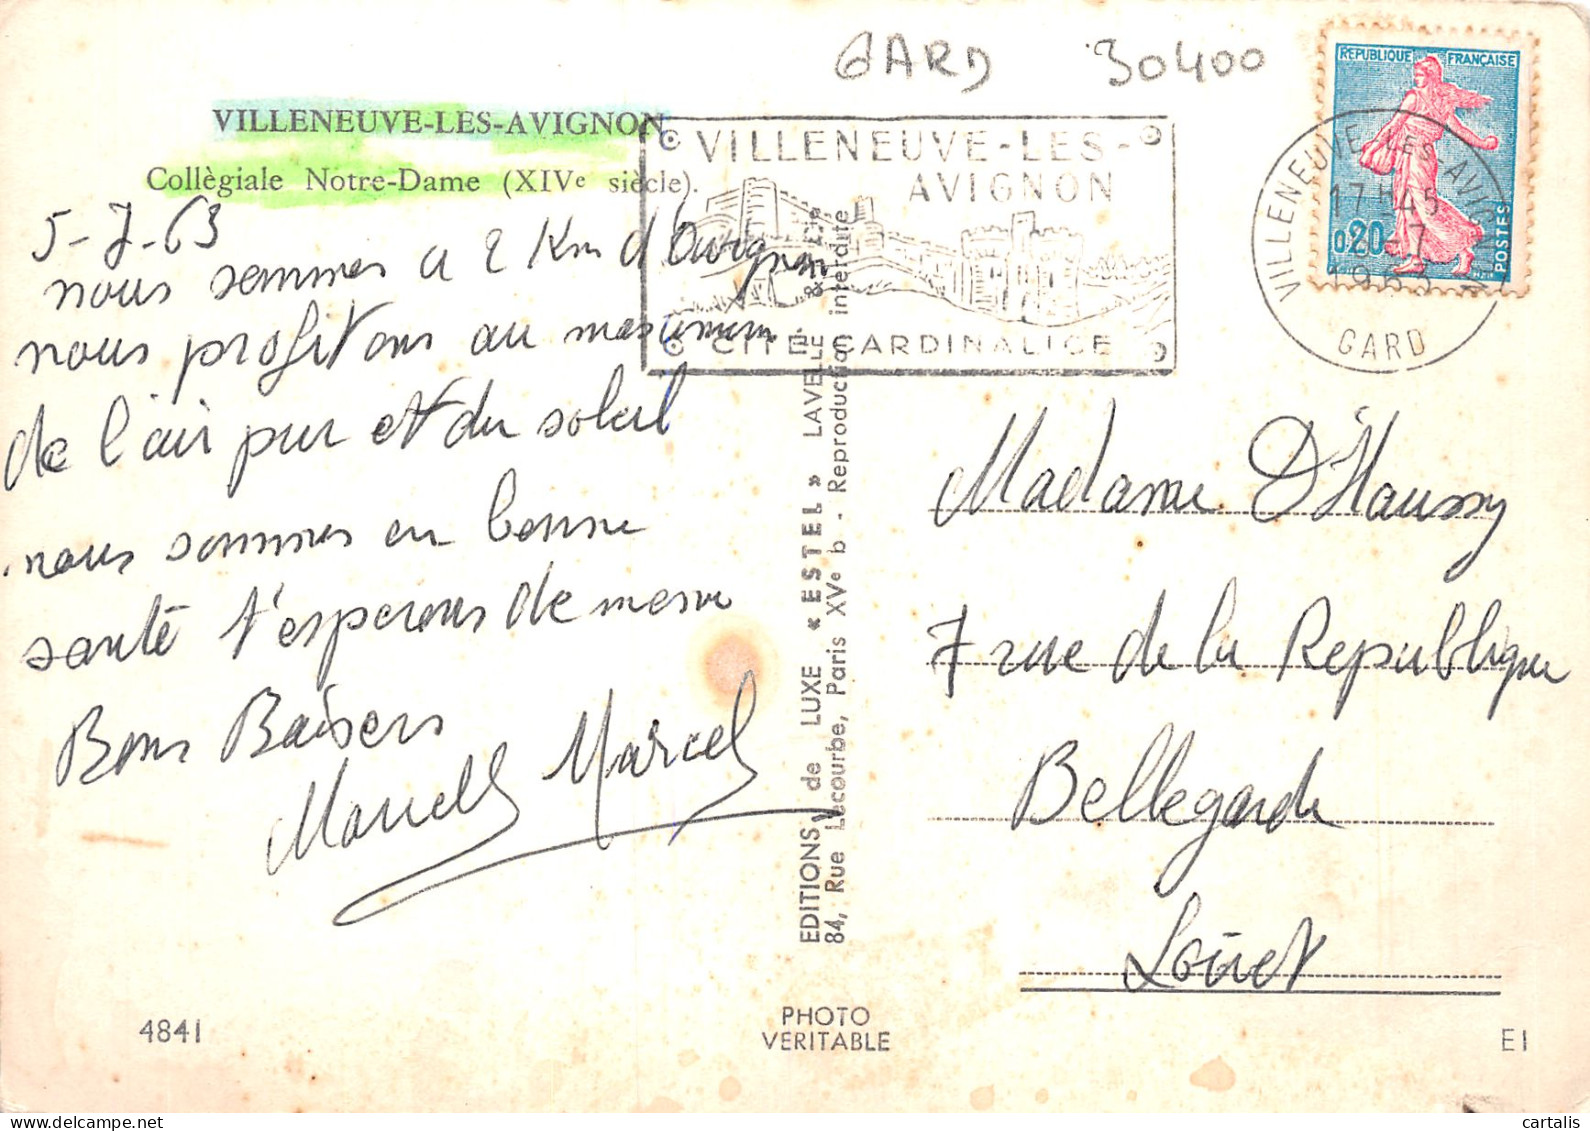 GARD 30400
REPUBLIQUE FRANÇAISE
0,20
POSTES
VILLENEUVE-LES-AVIGNON
17H45
1963
GARD
VILLENEUVE-LES-
AVIGNON
CITÉ CARDINALICE
VILLENEUVE-LES-AVIGNON
Collègiale Notre-Dame (XIVe siècle).
5-7-63
nous sommes a 2 Km d'Avignon
nous profitons au maximum
de l'air pur et du soleil
nous sommes en bonne
santé t'esperons de meme
Bons Baisers
Marcel
EDITIONS de LUXE « ESTEL » LAVELLE &
84, Rue Lecourbe, Paris XVe b - Reproduction interdite
Madame D'Haussy
7 rue de la Republique
Bellegarde
Loiret
4841
PHOTO
VERITABLE
E1